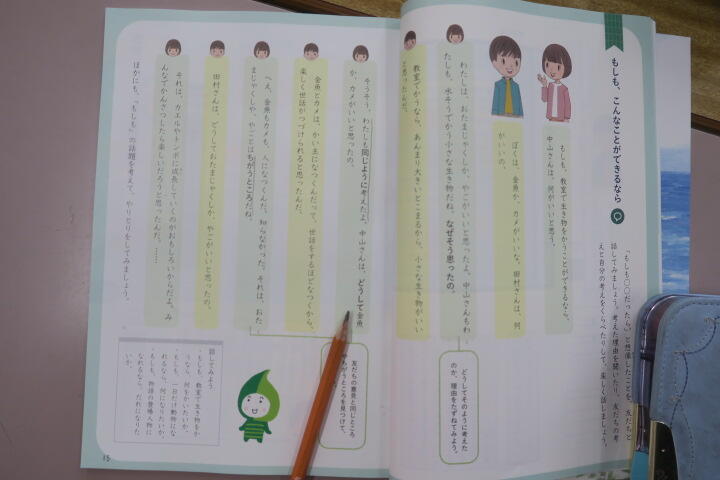 もしも、こんなことができるなら
「もしも○○だったら」と想像したことを、友だちと
話してみましょう。考えた理由を聞いたり、友だちの考
えと自分の考えをくらべたりして、楽しく話しましょう。
もしも、教室で生き物をかうことができるなら、
中山さんは、何がいいと思う。
ぼくは、金魚か、カメがいいな。田村さんは、何
がいいの。
わたしは、おたまじゃくしか、やごがいいと思ったよ。中山さんもわ
たしも、水そうでかう小さな生き物だね。なぜそう思ったの。
教室でかうなら、あんまり大きいとこまるから、小さな生き物がいい
と思ったんだ。
どうしてそのように考えた
のか、理由をたずねてみよう。
そうそう、わたしも同じように考えたよ。中山さんは、どうして金魚
か、カメがいいと思ったの。
金魚とカメは、かい主になつくんだって。世話をするほどなつくから、
楽しく世話がつづけられると思ったんだ。
へえ、金魚もカメも、人になつくんだ。知らなかった。それは、おた
まじゃくしや、やごとはちがうところだね。
友だちの意見と同じところ
ちがうところを見つけて、
田村さんは、どうしておたまじゃくしか、やごがいいと思ったの。
それは、カエルやトンボに成長していくのがおもしろいからだよ。み
んなでかんさつしたら楽しいだろうと思ったんだ。……
ほかにも、「もしも」の話題を考えて、やりとりをしてみましょう。
話してみよう
・もしも、教室で生き物をか
うなら、何をかいたいか。
・もしも、一日だけ動物にな
れるなら、何になりたいか。
・もしも、物語の登場人物に
なれるなら、だれになりた
いか。
15